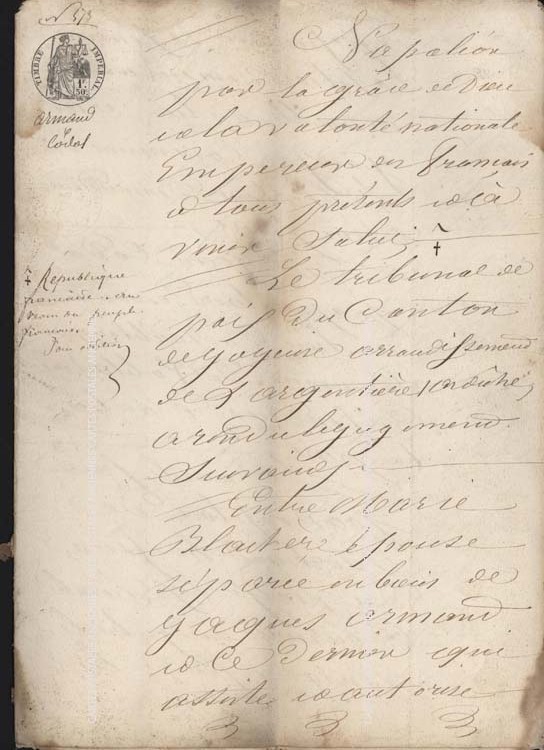 N° 373
TIMBRE IMPERIAL
1F 50c
armand
Codol
Napoléon
par la grâce de Dieu
et la volonté nationale
Empereur des Français
a tous présents et à
venir Salut †
† République
française au
nom du peuple
français
Le tribunal de
paix Du Canton
de Joyeuse arrondissement
de Largentière (ardèche)
a rendu le jugement
Suivant
Entre Marie
Blachère épouse
séparée en biens de
Jaques armand
et Ce Dernier qui
assiste et autorise